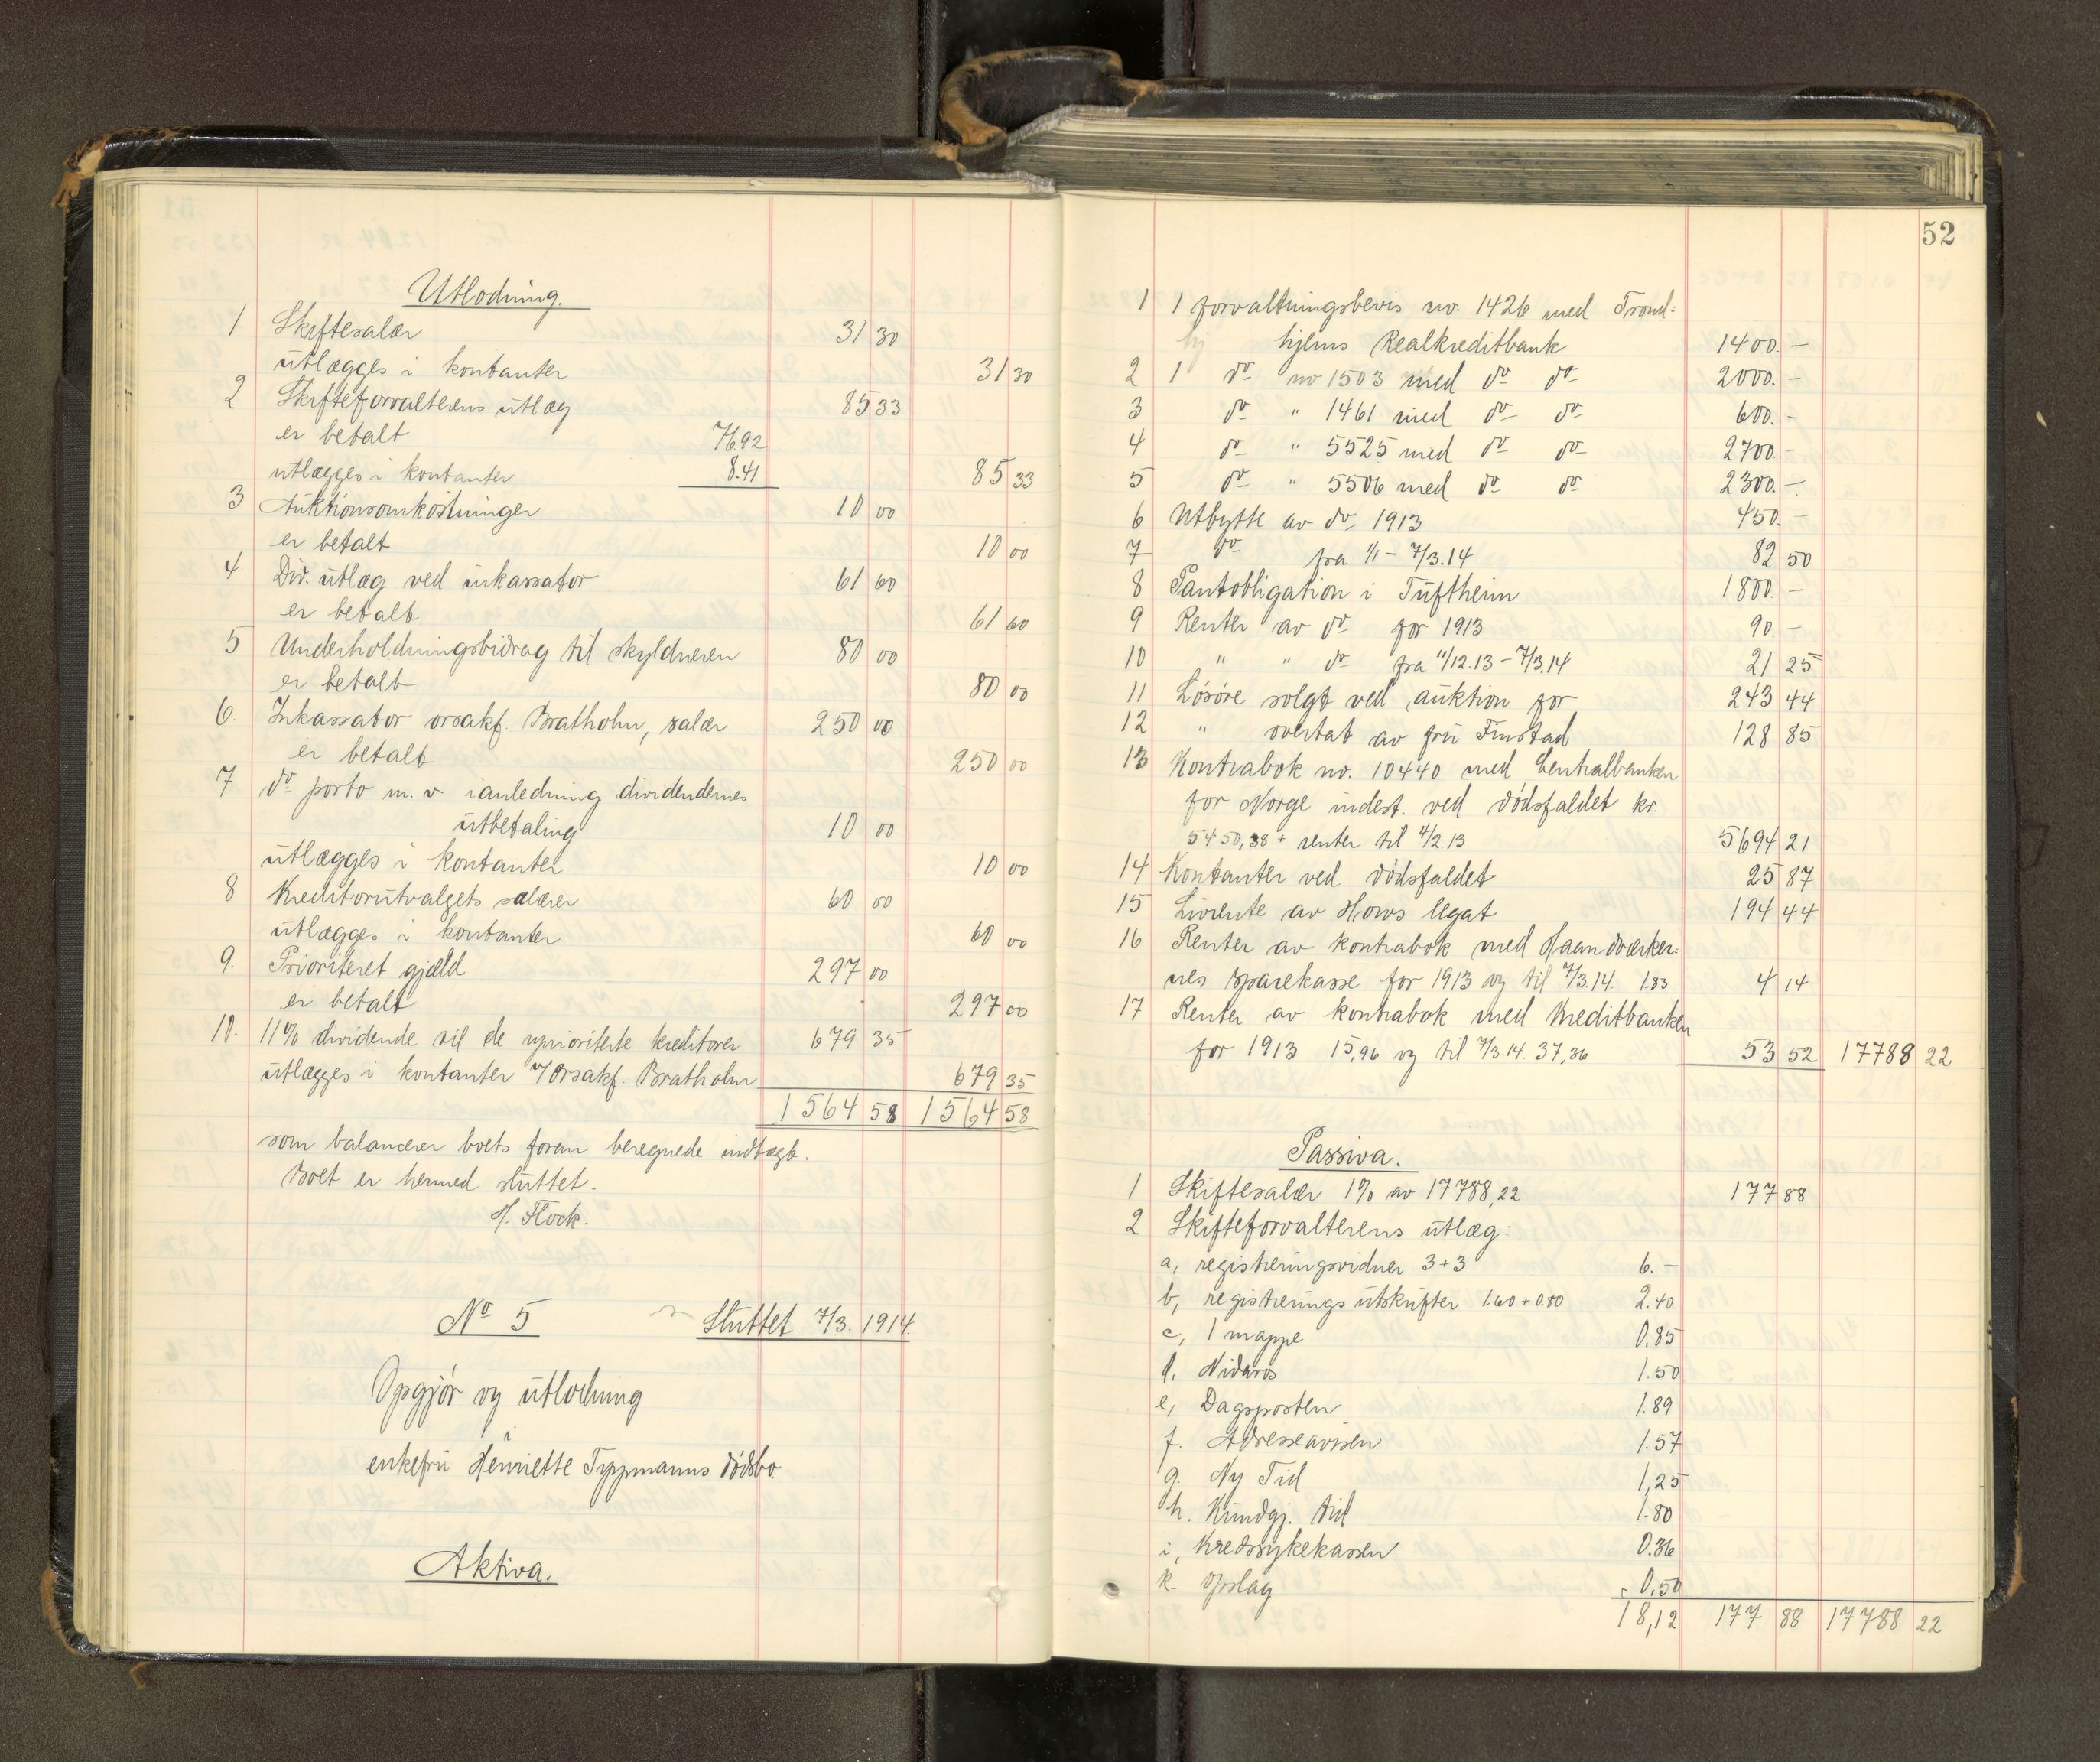 Utlodning.
1 Skiftesalær 31 30
utlægges i kontanter 31 30
2 Skifteforvalterens utlæg 85 33
er betalt 76.92
utlægges i kontanter 8.41 85 33
3 Auktionsomkostninger 10 00
er betalt 10 00
4 Div. utlæg ved inkassator 61 60
er betalt 61 60
5 Underholdningsbidrag til skyldneren 80 00
er betalt 80 00
6. Inkassator orsakf. Bratholm, salær 250 00
er betalt 250 00
7 do porto m. v. i anledning dividendernes
utbetaling 10 00
utlægges i kontanter 10 00
8 Kreditorutvalgets salærer 60 00
utlægges i kontanter 60 00
9. Prioriteret gjæld 297 00
er betalt 297 00
10. 11% dividende til de uprioriterte kreditorer 679 35
utlægges i kontanter v/ Orsakf. Bratholm 679 35
1564 58 1564 58
som balancerer boets foran beregnede indtægt.
Boet er hermed sluttet.
H. Flock.
No 5 Sluttet 7/3. 1914.
Opgjør og utlodning
i
enkefru Henriette Typpmanns dødsbo.
Aktiva.
52
1 1 forvaltningsbevis no. 1426 med Trond:
hjems Realkreditbank 1400. –
2 1 do no 1503 med do do 2000. –
3 do " 1461 med do do 600. –
4 do " 5525 med do do 2700. –
5 do " 5506 med do do 2300. –
6 Utbytte av do 1913 450. –
7 do fra 1/1 – 7/3.14 82 50
8 Pantobligation i Tuftheim 1800. –
9 Renter av do for 1913 90. –
10 " " do fra 11/12.13 – 7/3.14 21 25
11 Løsøre solgt ved auktion for 243 44
12 " overtat av fru Finstad 128 85
13 Kontrabok no. 10440 med Centralbanken
for Norge indest. ved dødsfaldet kr.
5450,38 + renter til 4/2.13 5694 21
14 Kontanter ved dødsfaldet 25 87
15 Livrente av Hows legat 194 44
16 Renter av kontrabok med Haandværker:
nes sparekasse for 1913 og til 7/3.14. 1.83 4 14
17 Renter av kontrabok med Kreditbanken
for 1913 15,96 og til 7/3.14. 37,36 53 52 17788 22
Passiva.
1 Skiftesalær 1% av 17788,22 177 88
2 Skifteforvalterens utlæg:
a, registreringsvidner 3+3 6. –
b, registrerings utskrifter 1.60 + 0.80 2.40
c, 1 mappe 0.85
d. Nidaros 1.50
e, Dagsposten 1.89
f. Adresseavisen 1.57
g. Ny Tid 1,25
h. Kundgj. tid 1.80
i, Kredssykekassen 0.36
k. Opslag 0.50
18,12 177 88 17788 22